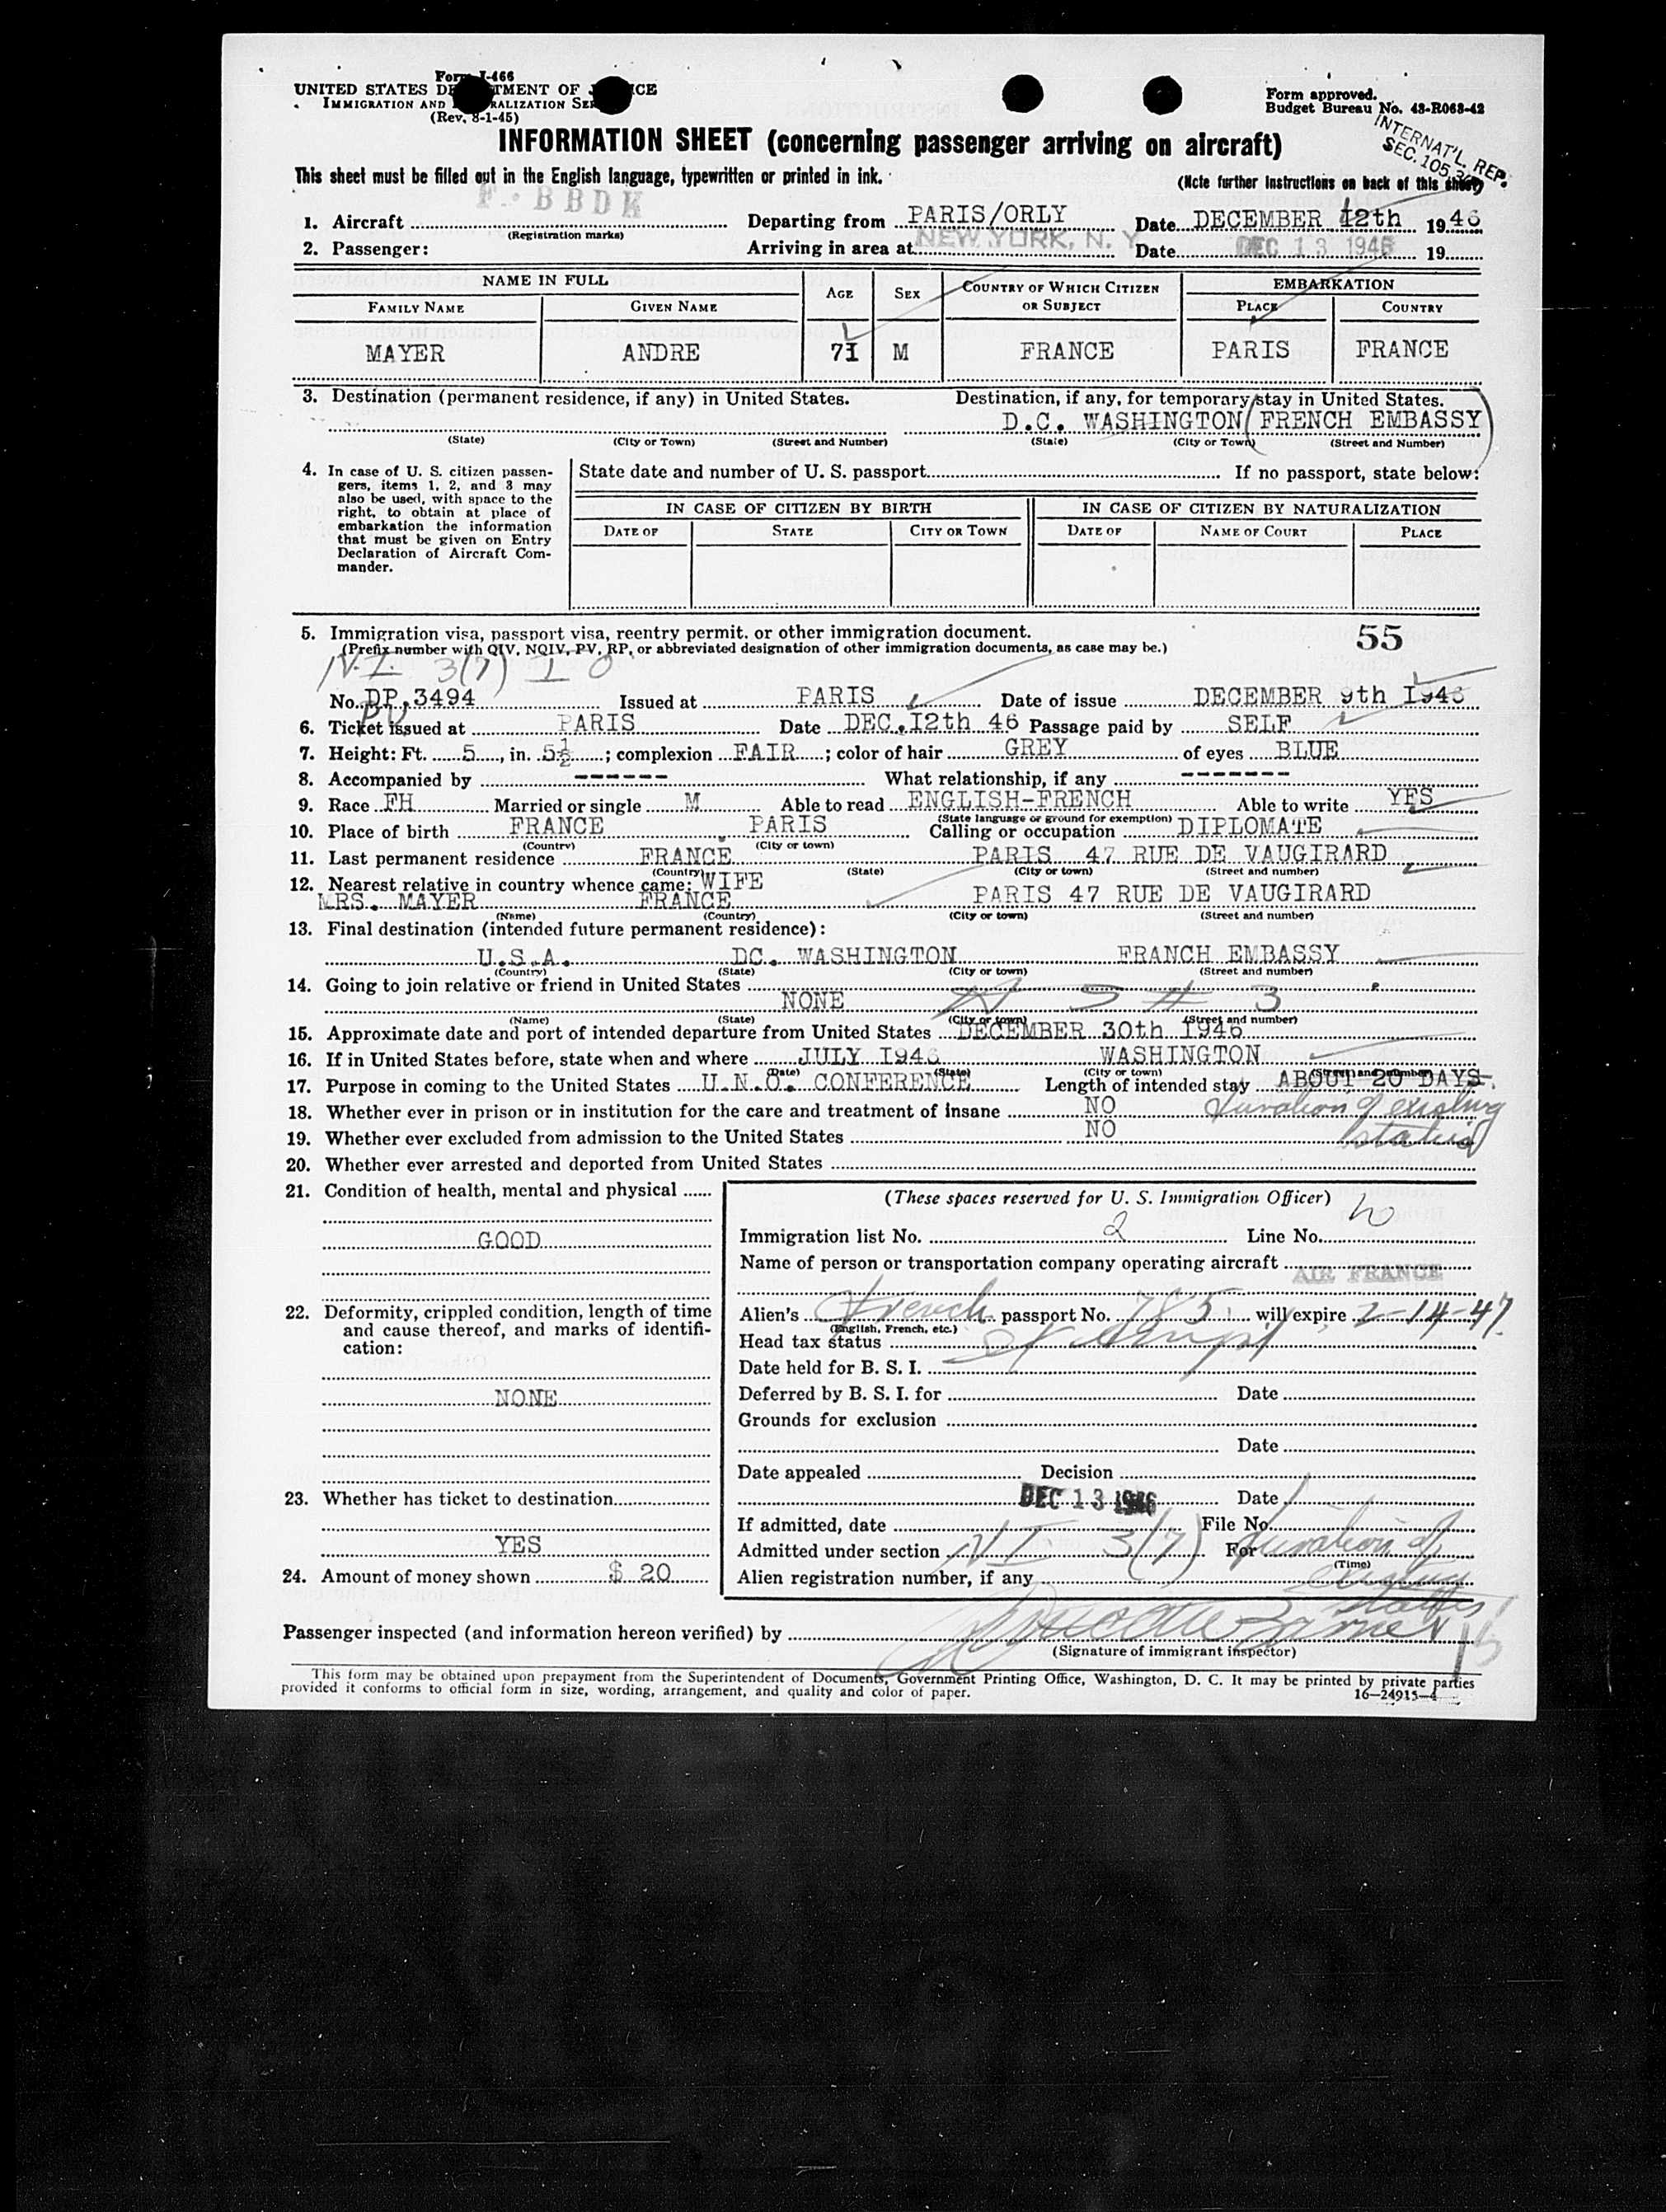 Form I-466
UNITED STATES DEPARTMENT OF JUSTICE
IMMIGRATION AND NATURALIZATION SERVICE
(Rev. 8-1-45)
Form approved.
Budget Bureau No. 43-R068-42
INTERNAT'L. REP.
SEC. 105.3
INFORMATION SHEET (concerning passenger arriving on aircraft)
This sheet must be filled out in the English language, typewritten or printed in ink.
(Note further instructions on back of this sheet)
F. BBDK
1. Aircraft (Registration marks) Departing from PARIS/ORLY Date DECEMBER 12th 1946
2. Passenger: Arriving in area at NEW YORK, N. Y. Date DEC 13 1946 19
NAME IN FULL AGE SEX COUNTRY OF WHICH CITIZEN OR SUBJECT EMBARKATION
FAMILY NAME GIVEN NAME PLACE COUNTRY
MAYER ANDRE 71 M FRANCE PARIS FRANCE
3. Destination (permanent residence, if any) in United States. Destination, if any, for temporary stay in United States.
D.C. WASHINGTON (FRENCH EMBASSY)
(State) (City or Town) (Street and Number) (State) (City or Town) (Street and Number)
4. In case of U. S. citizen passengers, items 1, 2, and 3 may also be used, with space to the right, to obtain at place of embarkation the information that must be given on Entry Declaration of Aircraft Commander.
State date and number of U. S. passport If no passport, state below:
IN CASE OF CITIZEN BY BIRTH IN CASE OF CITIZEN BY NATURALIZATION
DATE OF STATE CITY OR TOWN DATE OF NAME OF COURT PLACE
5. Immigration visa, passport visa, reentry permit, or other immigration document. 55
(Prefix number with QIV, NQIV, PV, RP, or abbreviated designation of other immigration documents, as case may be.)
N.I. 3(7) I O
No. DP.3494 Issued at PARIS Date of issue DECEMBER 9th I946
PV
6. Ticket issued at PARIS Date DEC.I2th 46 Passage paid by SELF
7. Height: Ft. 5, in. 5½; complexion FAIR; color of hair GREY of eyes BLUE
8. Accompanied by ------ What relationship, if any -------
9. Race FH Married or single M Able to read ENGLISH-FRENCH Able to write YES
(State language or ground for exemption)
10. Place of birth FRANCE PARIS Calling or occupation DIPLOMATE
(Country) (City or town)
11. Last permanent residence FRANCE PARIS 47 RUE DE VAUGIRARD
(Country) (State) (City or town) (Street and number)
12. Nearest relative in country whence came: WIFE
MRS. MAYER FRANCE PARIS 47 RUE DE VAUGIRARD
(Name) (Country) (City or town) (Street and number)
13. Final destination (intended future permanent residence):
U.S.A. DC. WASHINGTON FRANCH EMBASSY
(Country) (State) (City or town) (Street and number)
14. Going to join relative or friend in United States
NONE
(Name) (State) (City or town) (Street and number)
15. Approximate date and port of intended departure from United States DECEMBER 30th I946
16. If in United States before, state when and where JULY I946 WASHINGTON
(Date) (State) (City or town) (Street and number)
17. Purpose in coming to the United States U.N.O. CONFERENCE Length of intended stay ABOUT 20 DAYS.
18. Whether ever in prison or in institution for the care and treatment of insane NO duration of existing
19. Whether ever excluded from admission to the United States NO status
20. Whether ever arrested and deported from United States
21. Condition of health, mental and physical
GOOD
22. Deformity, crippled condition, length of time and cause thereof, and marks of identification:
NONE
23. Whether has ticket to destination
YES
24. Amount of money shown $ 20
(These spaces reserved for U. S. Immigration Officer)
Immigration list No. 2 Line No.
Name of person or transportation company operating aircraft AIR FRANCE
Alien's French passport No. 785 will expire 2-14-47
(English, French, etc.)
Head tax status exempt
Date held for B. S. I.
Deferred by B. S. I. for Date
Grounds for exclusion
Date
Date appealed Decision
DEC 13 1946 Date
If admitted, date File No.
Admitted under section NI 3(7) For duration of
(Time)
existing
Alien registration number, if any
status
Passenger inspected (and information hereon verified) by
(Signature of immigrant inspector)
This form may be obtained upon prepayment from the Superintendent of Documents, Government Printing Office, Washington, D. C. It may be printed by private parties
provided it conforms to official form in size, wording, arrangement, and quality and color of paper. 16—24915—4